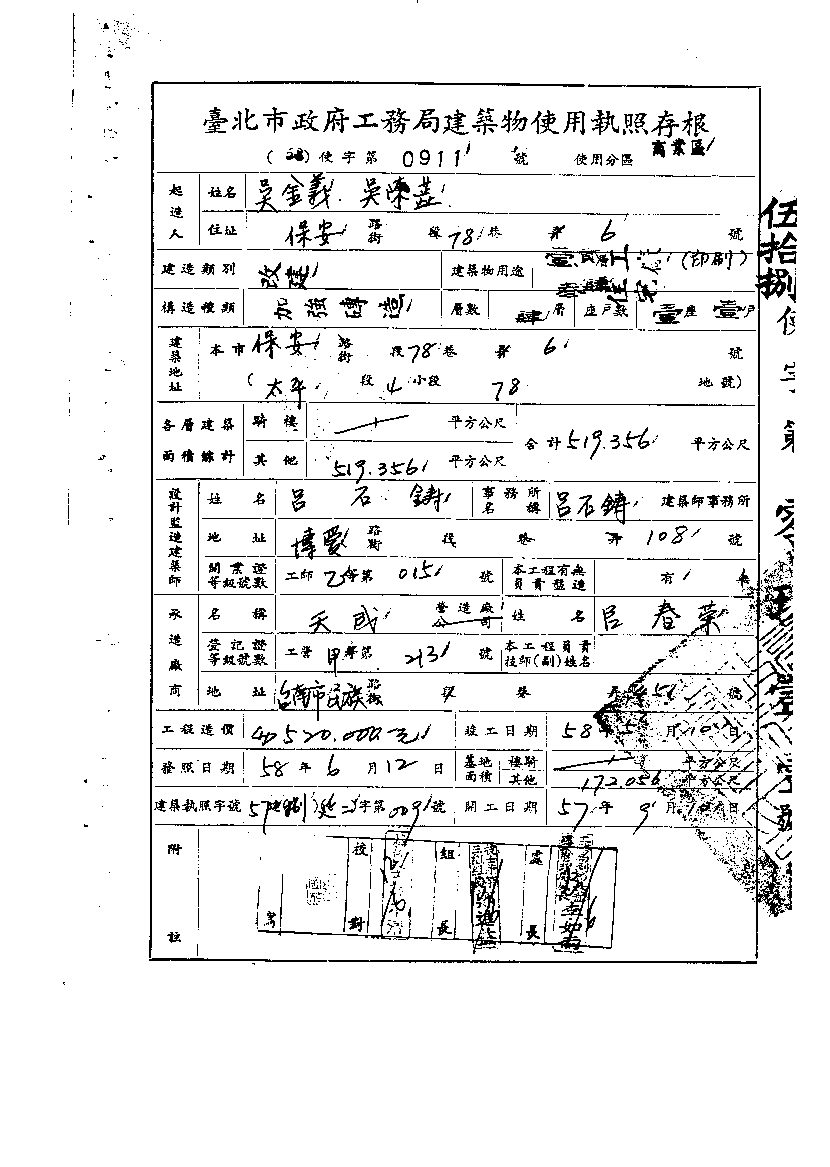 臺北市政府工務局建築物使用執照存根
(58)使字第 0911 號 使用分區 商業區
起造人 姓名 吳金義 吳陳
住址 保安 路街 段 78 巷 弄 6 號
建造類別 改建 建築物用途 壹 工廠 (印刷) 住宅
構造種類 加強磚造 層數 肆 層 座戶數 壹座 壹戶
建築地址 本市 保安 路街 段 78 巷 弄 6 號
(太平 段 4 小段 78 地號)
各層建築面積總計 騎樓 平方公尺 合計 519.356 平方公尺
其他 519.356 平方公尺
設計監造建築師 姓名 呂石鑄 事務所名稱 呂石鑄 建築師事務所
地址 博愛 路街 段 巷 弄 108 號
開業證等級號數 工師 乙等第 015 號 本工程有無負責監造 有 無
承造廠商 名稱 天成 營造廠公司 姓名 呂春榮
登記證等級號數 工營 甲等第 213 號 本工程負責技師(副)姓名
地址 台南市民族 路街 段 巷 弄 號
工程造價 520.000元 竣工日期 58 年 月 10 日
發照日期 58 年 6 月 12 日 基地面積 騎樓 平方公尺
其他 172.056 平方公尺
建築執照字號 57 字第 009 號 開工日期 57 年 9 月 日
附註 校對 組長 處長
伍拾捌使字第零玖壹壹號